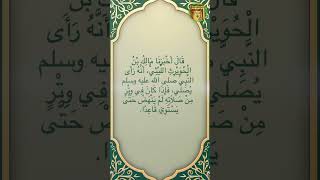 قَالَ أَخْبَرَنَا مَالِكُ بْنُ
الْحُوَيْرِثِ اللَّيْثِيُّ، أَنَّهُ رَأَى
النبي صلى الله عليه وسلم
يُصَلِّي، فَإِذَا كَانَ فِي وِتْرٍ
مِنْ صَلَاتِهِ لَمْ يَنْهَضْ حَتَّى
يَسْتَوِيَ قَاعِدًا.